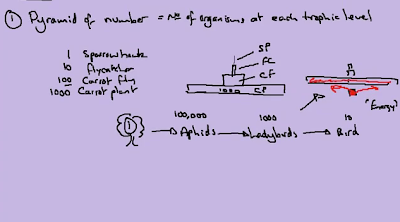 ① Pyramid of number = No of organisms at each trophic level
1 Sparrowhawk
10 Flycatcher
100 Carrot fly
1000 Carrot plant
SP
FC
CF
1000 CP
"Energy"
100,000 1000 10
1 → Aphids → Ladybirds → Bird